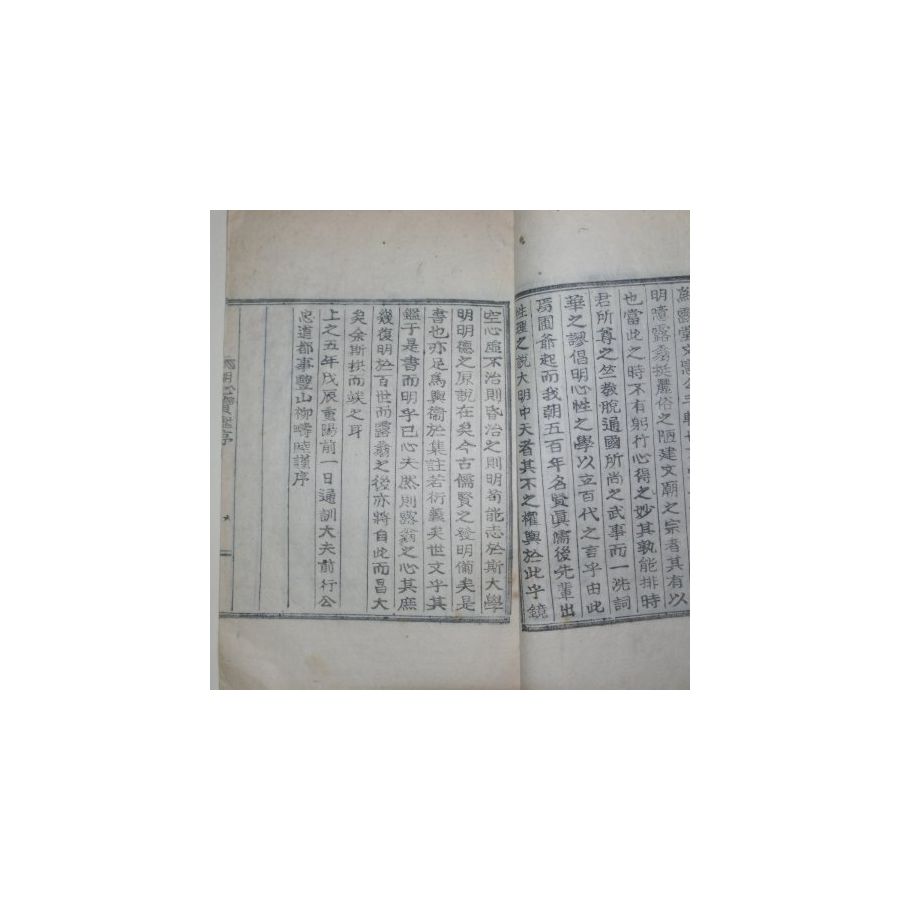 明
露翁挺麗俗之陋建文廟之宗者其有以
也當此之時不有躬行心得之妙其孰能排時
君所尊之竺敎脫通國所尚之武事而一洗詞
華之謬倡明心性之學以立百代之言乎由此
圃爺起而我朝五百年名賢眞儒後先輩出
性理之說大明中天者其不之權輿於此乎鏡
空心虛不治則昏治之則明苟能志於斯大學
明明德之原說在矣今古儒賢之發明備矣是
書也亦足爲輿衛於集註若衍義矣世文乎其
鑑于是書而明乎已心夫然則露翁之心其庶
幾復明於百世而露翁之後亦將自此而昌大
矣余斯拱而竢之耳
上之五年戊辰重陽前一日通訓大夫前行公
忠道都事豐山柳疇睦謹序
明心寶鑑序